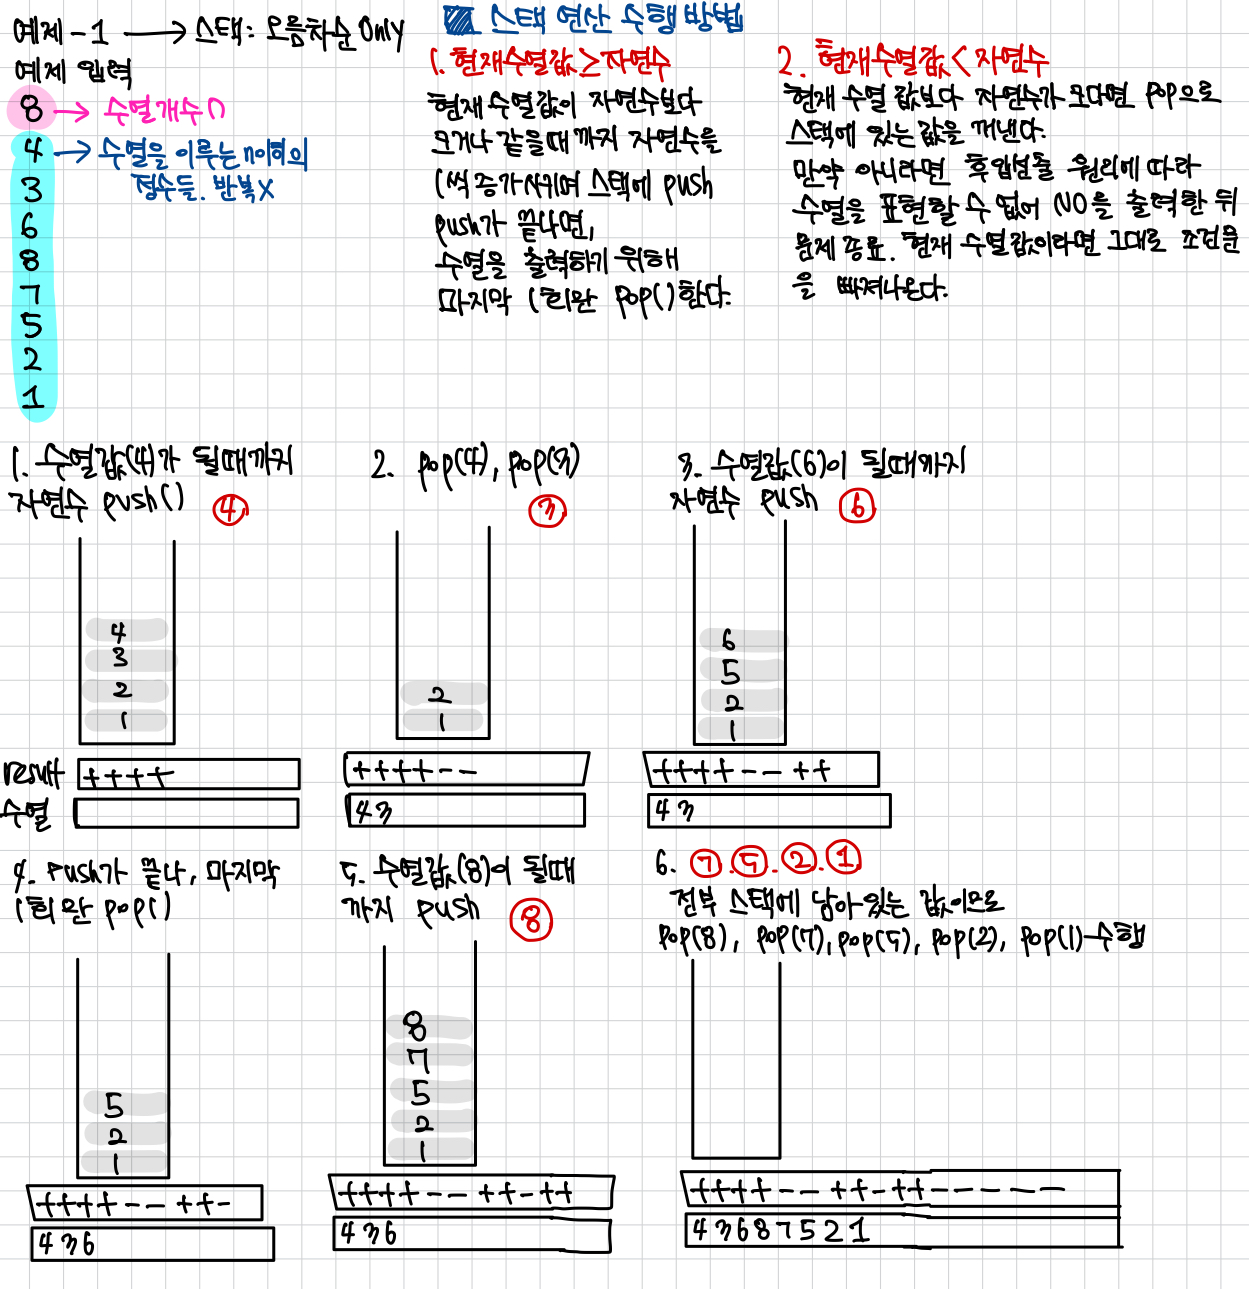 예제-1 → 스택: 오름차순 Only
예제 입력
8 → 수열개수 n
4 → 수열을 이루는 n이하의
정수들. 반복X
3
6
8
7
5
2
1
스택 연산 수행 방법
1. 현재수열값 ≥ 자연수
현재 수열값이 자연수보다
크거나 같을때 까지 자연수를
1씩 증가시키며 스택에 push
push가 끝나면,
수열을 출력하기 위해
마지막 1회만 pop()한다.
2. 현재수열값 < 자연수
현재 수열 값보다 자연수가 크다면 pop으로
스택에 있는 값을 꺼낸다.
만약 아니라면 후입선출 원리에 따라
수열을 표현할 수 없어 NO를 출력한 뒤
문제 종료. 현재 수열값이라면 그대로 조건문
을 빠져나온다.
1. 수열값(4)가 될때까지
자연수 push() ④
4
3
2
1
result ++++
수열
2. pop(4), pop(3)
③
2
1
++++--
43
3. 수열값(6)이 될때까지
자연수 push ⑥
6
5
2
1
++++--++
43
4. Push가 끝나, 마지막
1회만 pop()
5
2
1
++++--++-
436
5. 수열값(8)이 될때
까지 push ⑧
8
7
5
2
1
++++--++-++
436
6. ⑦.⑤.②.①
전부 스택에 남아있는 값이므로
pop(8), pop(7), pop(5), pop(2), pop(1) 수행
++++--++-++-----
43687521